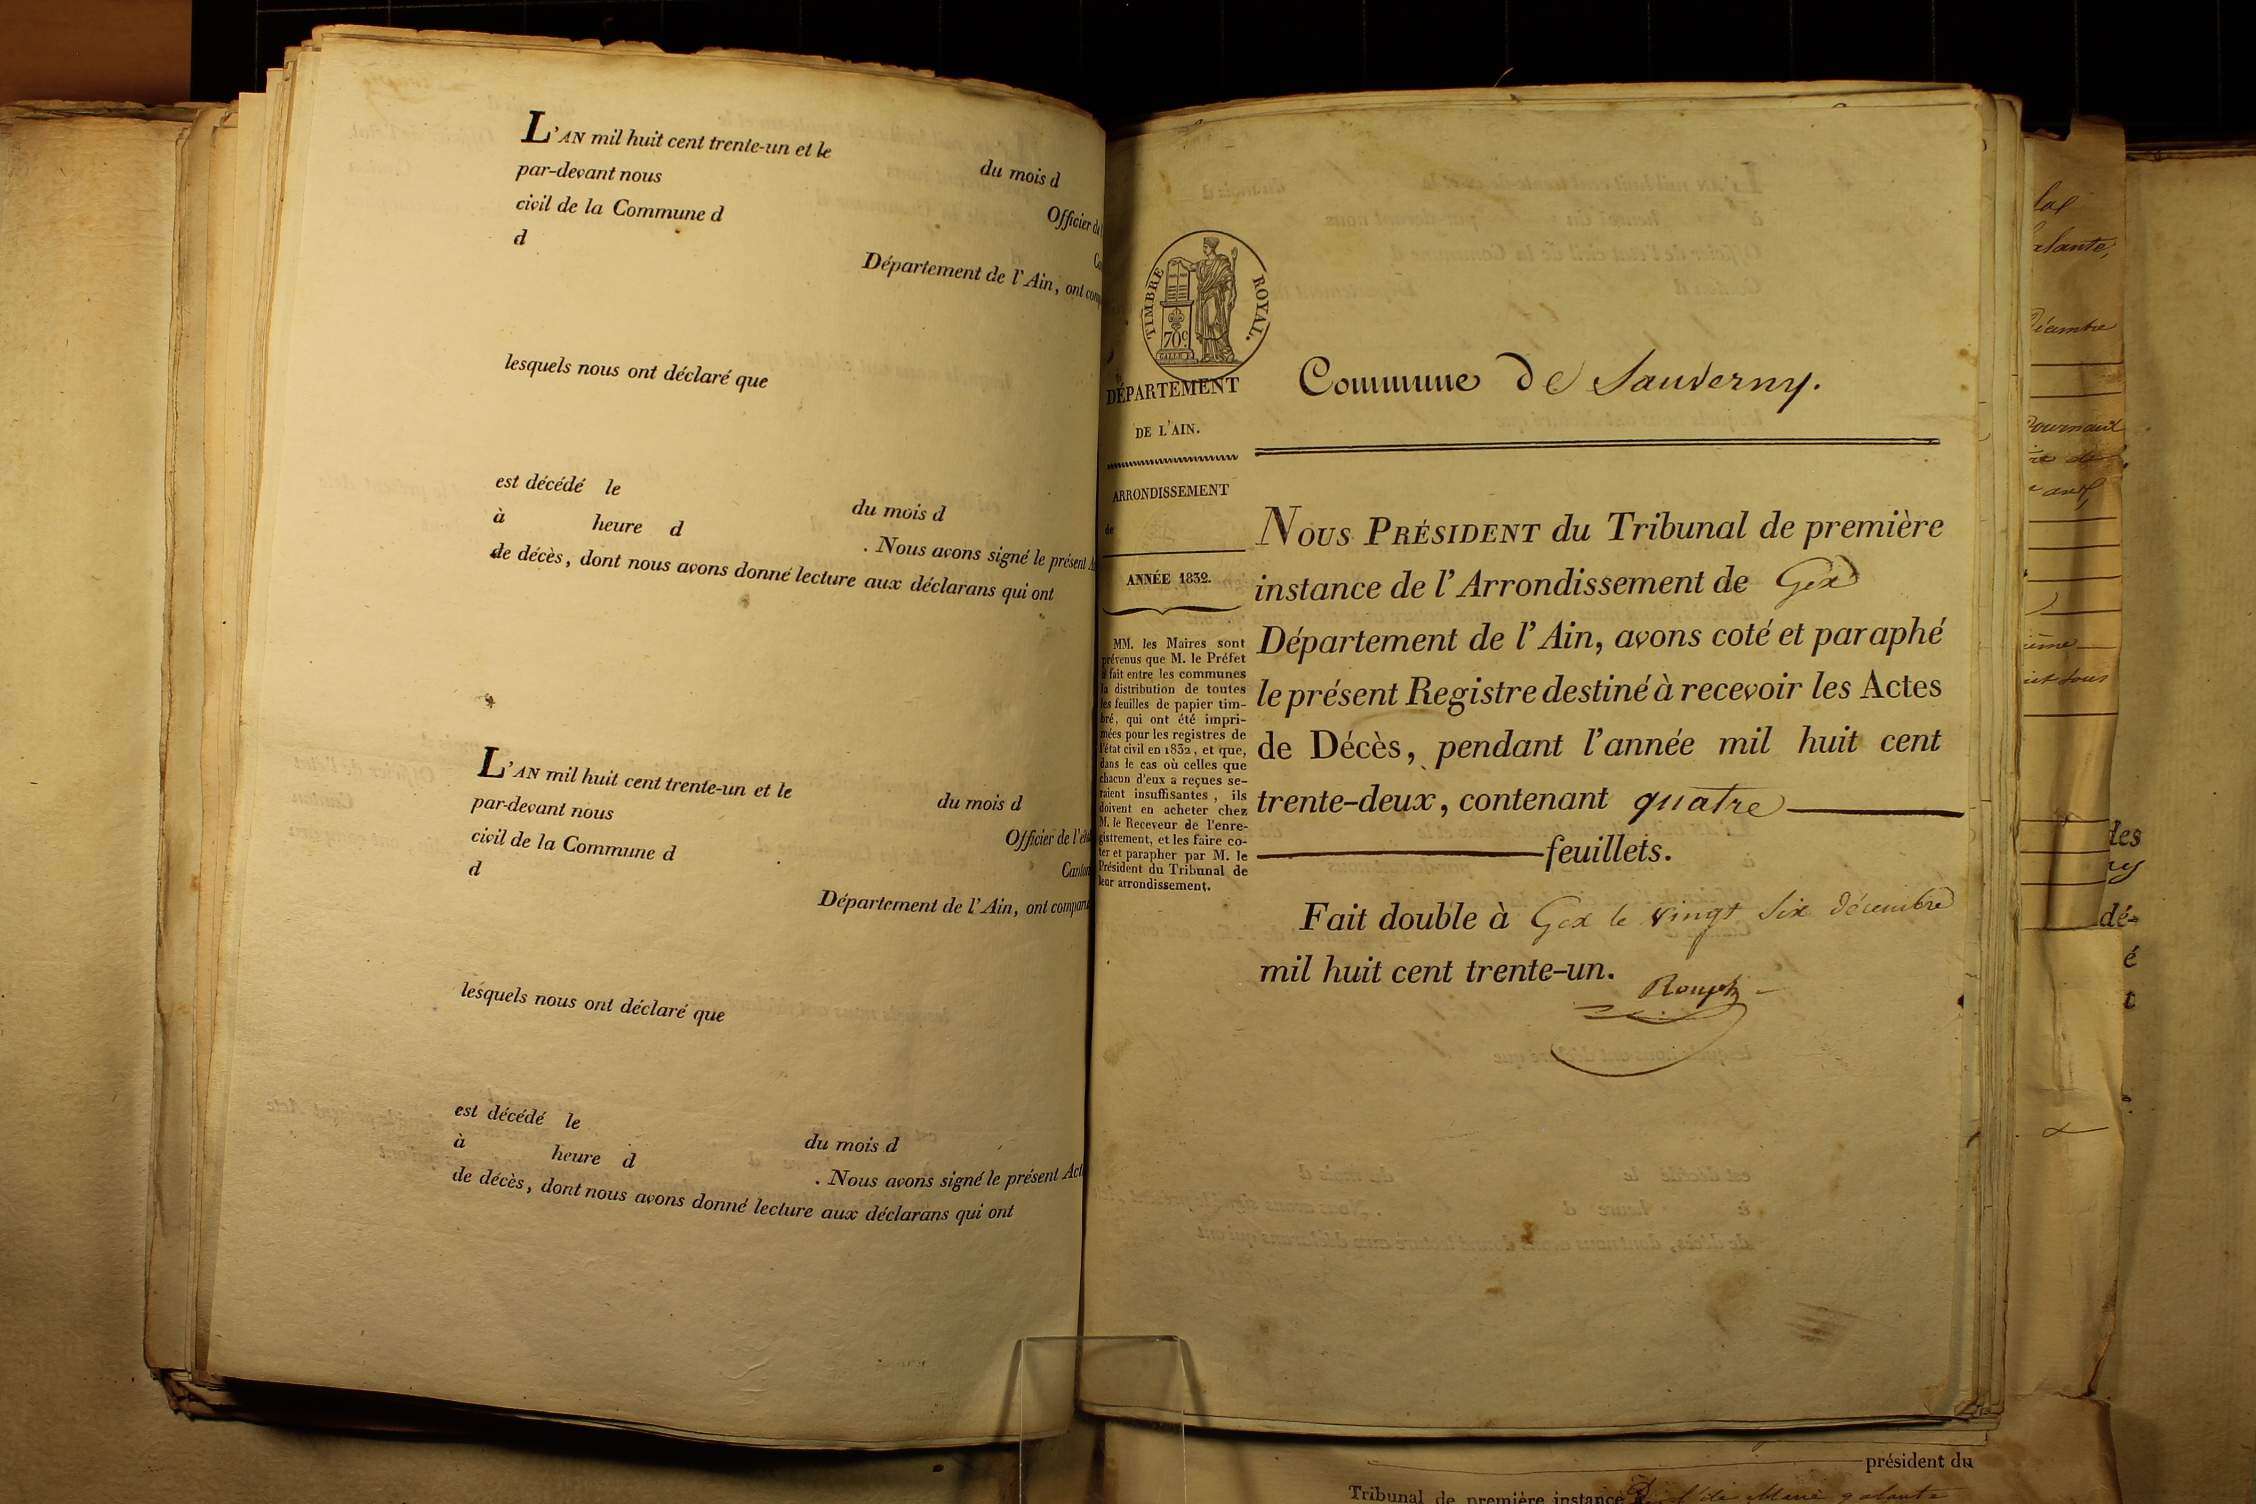 L'AN mil huit cent trente-un et le du mois d
par-devant nous Officier de
civil de la Commune d
d Département de l'Ain, ont
lesquels nous ont déclaré que
est décédé le du mois d
à heure d . Nous avons signé le présent
de décès, dont nous avons donné lecture aux déclarans qui ont
L'AN mil huit cent trente-un et le du mois d
par-devant nous Officier de
civil de la Commune d Canton
d Département de l'Ain, ont
lesquels nous ont déclaré que
est décédé le du mois d
à heure d . Nous avons signé le présent
de décès, dont nous avons donné lecture aux déclarans qui ont
TIMBRE ROYAL.
70c
DÉPARTEMENT
DE L'AIN.
ARRONDISSEMENT
de
ANNÉE 1832.
MM. les Maires sont
prévenus que M. le Préfet
a fait entre les communes
la distribution de toutes
les feuilles de papier tim-
bré, qui ont été impri-
mées pour les registres de
l'état civil en 1832, et que,
dans le cas où celles que
chacun d'eux a reçues se-
raient insuffisantes, ils
doivent en acheter chez
M. le Receveur de l'enre-
gistrement, et les faire co-
ter et parapher par M. le
Président du Tribunal de
leur arrondissement.
Commune de Sauverny.
NOUS PRÉSIDENT du Tribunal de première
instance de l'Arrondissement de Gex
Département de l'Ain, avons coté et paraphé
le présent Registre destiné à recevoir les Actes
de Décès, pendant l'année mil huit cent
trente-deux, contenant quatre
feuillets.
Fait double à Gex le vingt six décembre
mil huit cent trente-un.
président du
Tribunal de première instance